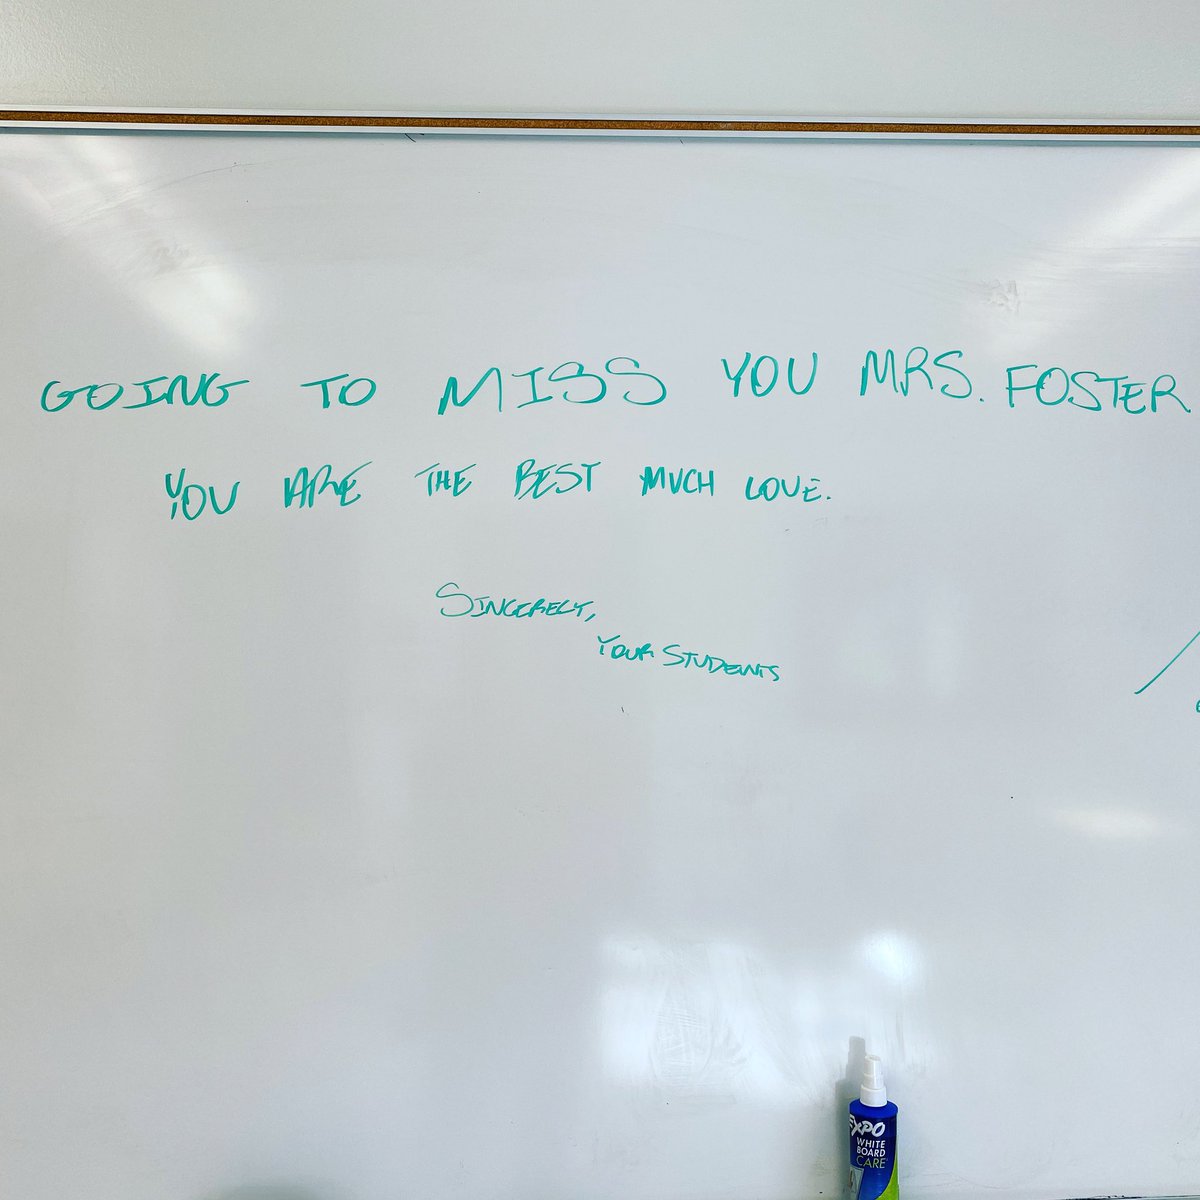 GOING TO MISS YOU MRS. FOSTER
YOU ARE THE BEST MUCH LOVE.
SINCERELY,
YOUR STUDENTS
EXPO
WHITE
BOARD
CARE